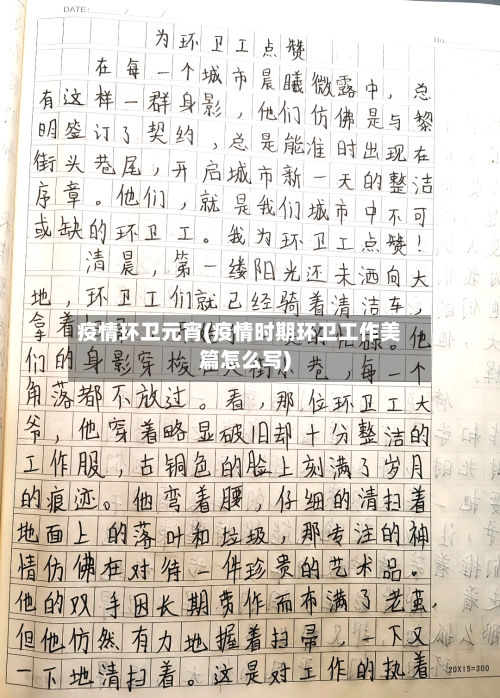 DATE:
No.
为环卫工点赞
在每一个城市晨曦微露中，总
有这样一群身影，他们仿佛是与黎
明签订了契约，总是能准时出现在
街头巷尾，开启城市新一天的整洁
序章。他们，就是我们城市中不可
或缺的环卫工。我为环卫工点赞！
清晨，第一缕阳光还未洒向大
地，环卫工们就已经骑着清洁车，
拿着
疫情环卫元宵(疫情时期环卫工作美
篇怎么写)
碌。他
们的身影穿梭在大街小巷，每一个
角落都不放过。看，那位环卫工大
爷，他穿着略显破旧却十分整洁的
工作服，古铜色的脸上刻满了岁月
的痕迹。他弯着腰，仔细的清扫着
地面上的落叶和垃圾，那专注的神
情仿佛在对待一件珍贵的艺术品。
他的双手因长期劳作而布满了老茧，
但他仿然有力地握着扫帚，一下又
一下地清扫着。这是对工作的执着
20X15=300